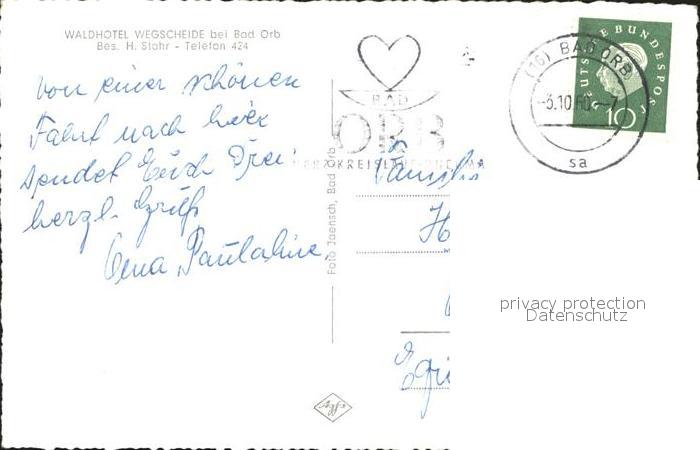 WALDHOTEL WEGSCHEIDE bei Bad Orb
Bes. H. Stahr - Telefon 424
von einer schönen
Fahrt nach hier
sendet Euch Drei
herzl. Grüße
Paulahine
BAD
ORB
(16) BAD ORB
-3.10.60.-7
sa
DEUTSCHE BUNDESPOST
10
Foto Jaensch, Bad Orb
Familie
privacy protection
Datenschutz
Agfa